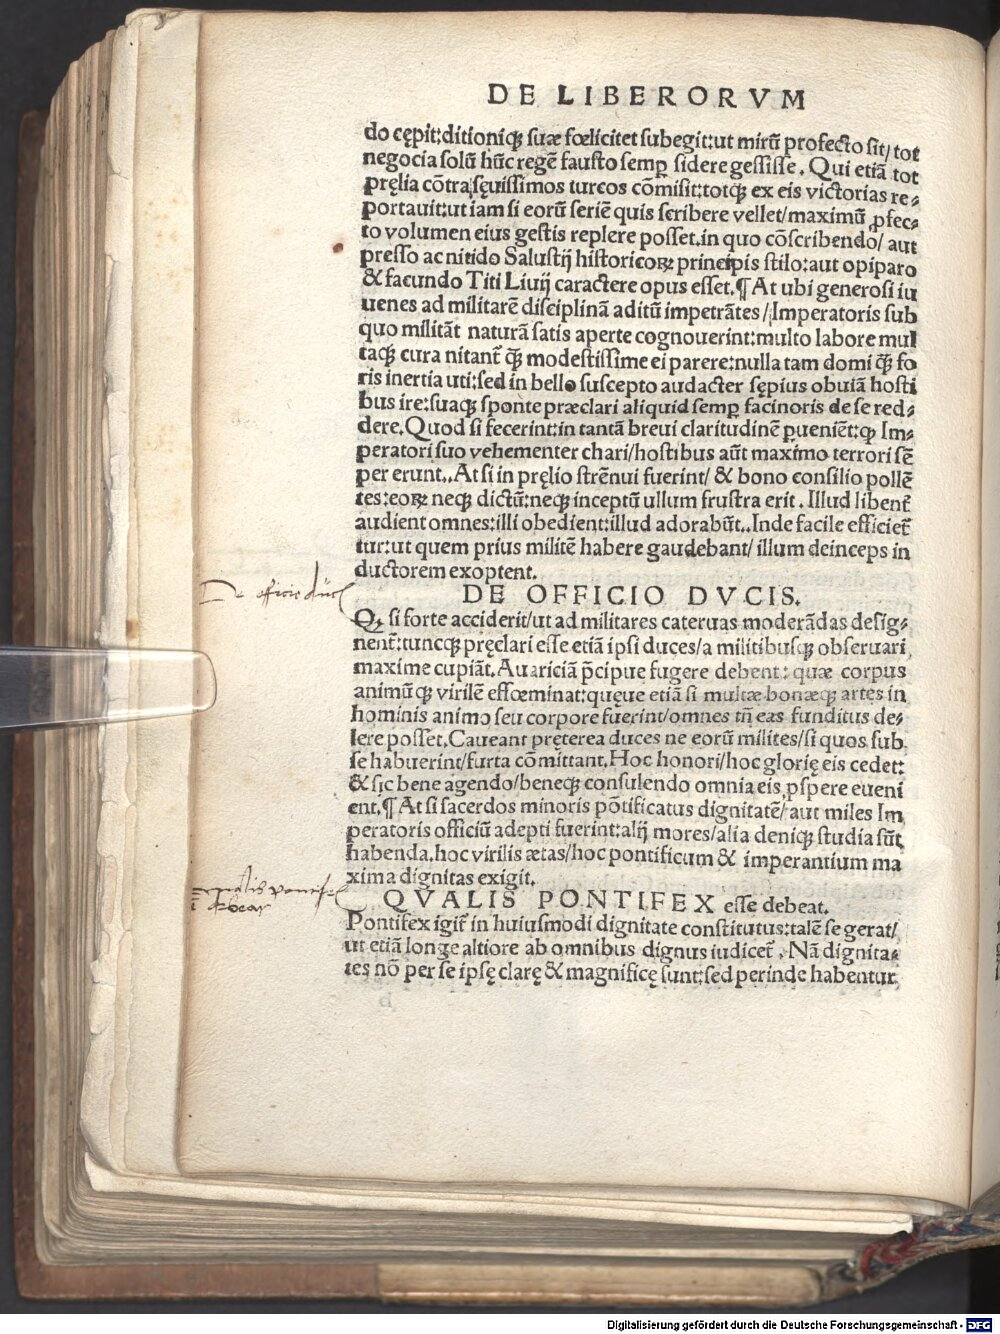 DE LIBERORVM
do cępit:ditioniq; suæ fœlicitet subegit:ut mirũ profecto sit/tot
negocia solũ hũc regẽ fausto semꝑ sidere gessisse. Qui etiã tot
pręlia cõtra sęuissimos turcos cõmisit:totq; ex eis victorias re⸗
portauit:ut iam si eorũ seriẽ quis scribere vellet/maximũ ꝓfec⸗
to volumen eius gestis replere posset.in quo cõscribendo/ aut
presso ac nitido Salustij historicoꝝ principis stilo:aut opiparo
& facundo Titi Liuij caractere opus esset.¶At ubi generosi iu
uenes ad militarẽ disciplinã aditũ impetrãtes/Imperatoris sub
quo militãt naturã satis aperte cognouerint:multo labore mul
taq; cura nitant᷑ q̃ꝫ modestissime ei parere:nulla tam domi q̃ꝫ fo
ris inertia uti:sed in bello suscepto audacter sępius obuiã hosti
bus ire:suaq; sponte præclari aliquid semꝑ facinoris de se red⸗
dere.Quod si fecerint:in tantã breui claritudinẽ ꝑueniẽt:ꝙ Im⸗
peratori suo vehementer chari/hostibus aũt maximo terrori sẽ
per erunt..At si in pręlio strẽnui fuerint/ & bono consilio pollẽ
tes:eoꝝ neq; dictũ:neq; inceptũ ullum frustra erit. Illud libent᷑
audient omnes:illi obedient:illud adorabũt..Inde facile efficiet᷑
tur:ut quem prius militẽ habere gaudebant/ illum deinceps in
ductorem exoptent.
De officio duc
DE OFFICIO DVCIS.
Qꝫ si forte acciderit/ut ad militares cateruas moderãdas desig⸗
nent᷑:tuncq; pręclari esse etiã ipsi duces/a militibusq; obseruari
maxime cupiãt.Auariciã p̃cipue fugere debent: quæ corpus
animũq; virilẽ effœminat:quęue etiã si multæ bonæq; artes in
hominis animo seu corpore fuerint/omnes tñ eas funditus de⸗
lere posset.Caueant pręterea duces ne eorũ milites/si quos sub
se habuerint/furta cõmittant.Hoc honori/hoc glorię eis cedet:
& sic bene agendo/beneq; consulendo omnia eis ꝓspere eueni
ent.¶At si sacerdos minoris põtificatus dignitatẽ/aut miles Im
peratoris officiũ adepti fuerint:alij mores/alia deniq; studia sũt
habenda.hoc virilis ætas/hoc pontificum & imperantium ma
xima dignitas exigit.
QVALIS PONTIFEX esse debeat.
Pontifex igit᷑ in huiusmodi dignitate constitutus:talẽ se gerat/
ut etiã longe altiore ab omnibus dignus iudicet᷑. Nã dignita⸗
tes nõ per se ipsę clarę & magnificę sunt:sed perinde habentur
Digitalisierung gefördert durch die Deutsche Forschungsgemeinschaft - DFG